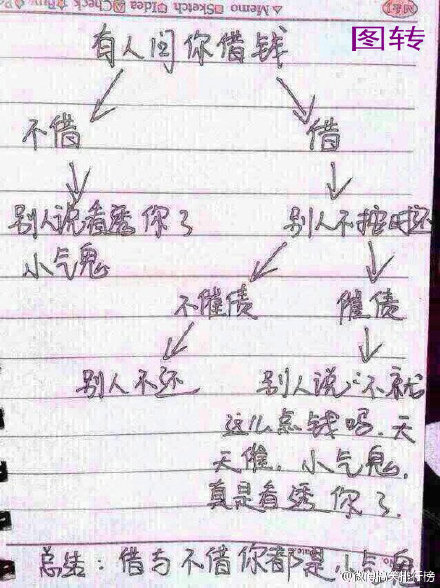 Memo Sketch Idea Check
图转
有人问你借钱
不借 借
别人说看透你了 别人不按时还
小气鬼
不催债 催债
别人不还 别人说:不就
这么点钱吗,天
天催,小气鬼,
真是看透你了.
总结:借与不借你都是小气鬼